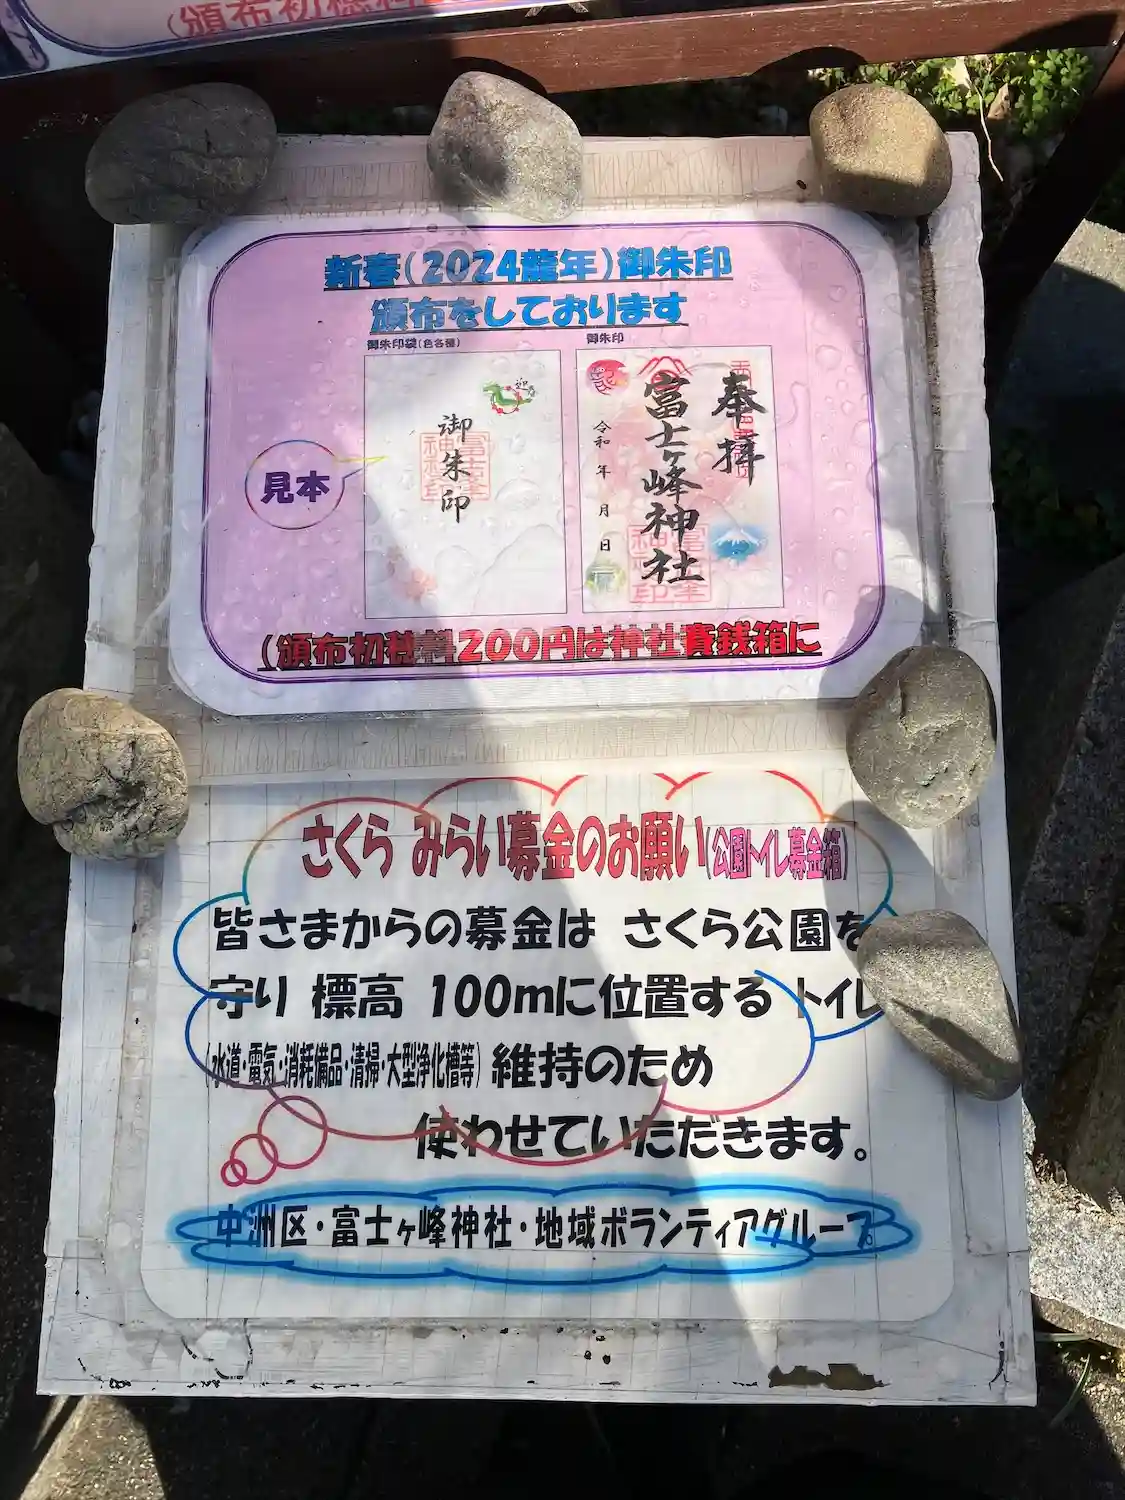 (頒布初穂料
新春(2024龍年)御朱印
頒布をしております
御朱印袋(色各種)
御朱印
迎春
御朱印
見本
奉拝
富士ヶ峰神社
令和 年 月 日
(頒布初穂料200円は神社賽銭箱に
さくら みらい募金のお願い(公園トイレ募金箱)
皆さまからの募金は さくら公園を
守り 標高 100mに位置する トイレ
(水道・電気・消耗備品・清掃・大型浄化槽等) 維持のため
使わせていただきます。
中洲区・富士ヶ峰神社・地域ボランティアグループ